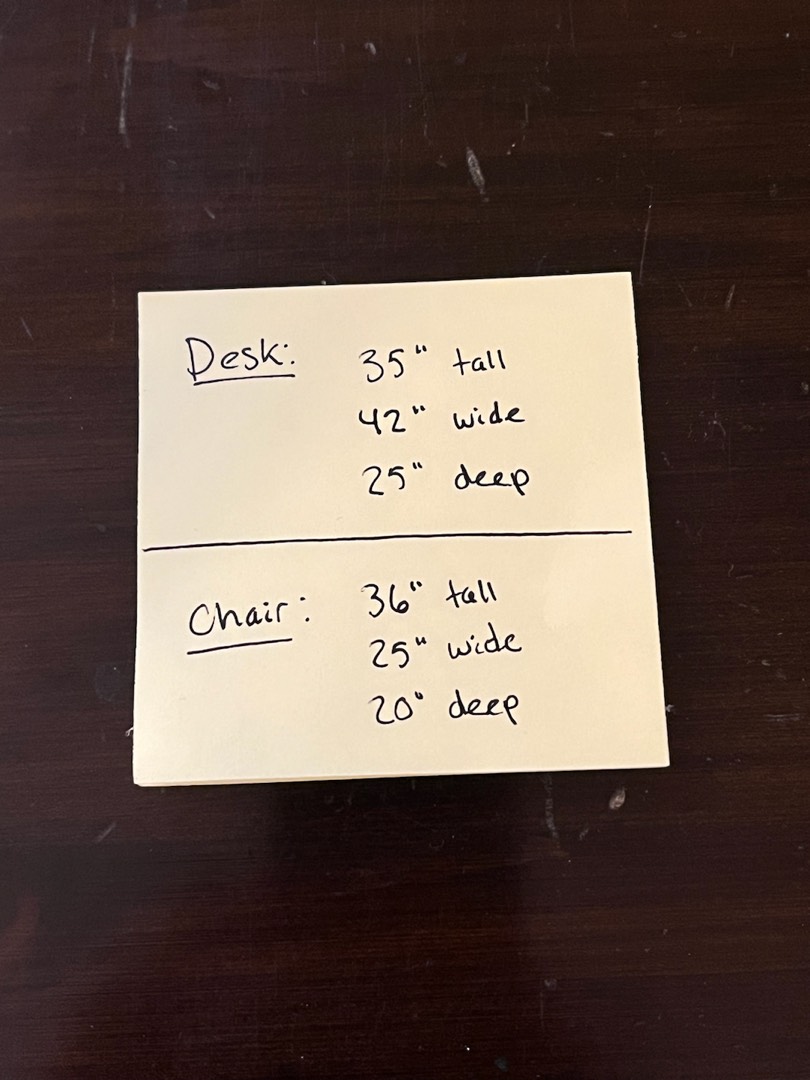 Desk: 35" tall
42" wide
25" deep
Chair: 36" tall
25" wide
20" deep